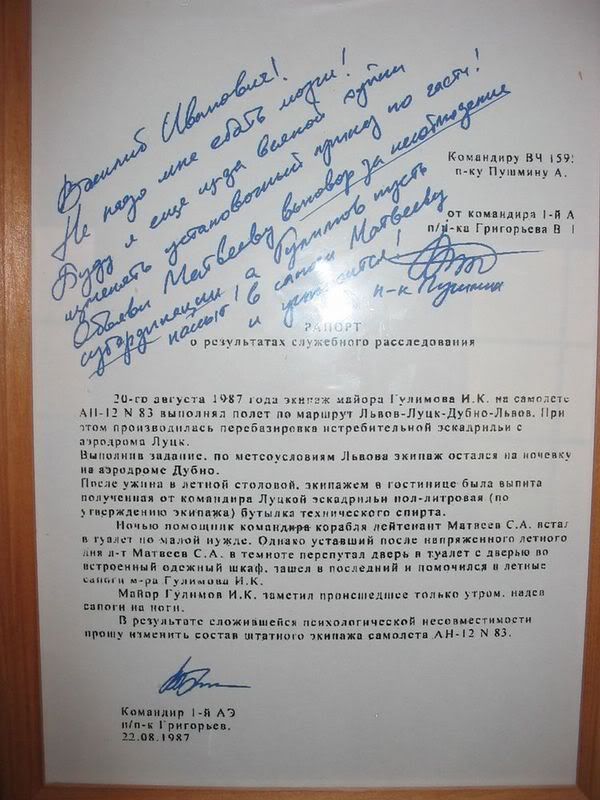 Василий Иванович!
Не надо мне ебать мозги!
Буду я еще из-за всякой хуйни
изменять установочный приказ по части!
Объяви Матвееву выговор за несоблюдение
субординации, а Гулимов пусть
нассыт в сапоги Матвееву
и успокоится!
п-к Пушмин
Командиру ВЧ 159
п-ку Пушмину А.
от командира 1-й А
п/п-ка Григорьева В
РАПОРТ
о результатах служебного расследования
20-го августа 1987 года экипаж майора Гулимова И.К. на самолете
АН-12 N 83 выполнял полет по маршрут Львов-Луцк-Дубно-Львов. При
этом производилась перебазировка истребительной эскадрильи с
аэродрома Луцк.
Выполнив задание, по метеоусловиям Львова экипаж остался на ночевку
на аэродроме Дубно.
После ужина в летной столовой, экипажем в гостинице была выпита
полученная от командира Луцкой эскадрильи пол-литровая (по
утверждению экипажа) бутылка технического спирта.
Ночью помощник командира корабля лейтенант Матвеев С.А. встал
в туалет по малой нужде. Однако уставший после напряженного летного
дня л-т Матвеев С.А. в темноте перепутал дверь в туалет с дверью во
встроенный одежный шкаф, зашел в последний и помочился в летные
сапоги м-ра Гулимова И.К.
Майор Гулимов И.К. заметил происшедшее только утром, надев
сапоги на ноги.
В результате сложившейся психологической несовместимости
прошу изменить состав штатного экипажа самолета АН-12 N 83.
Командир 1-й АЭ
п/п-к Григорьев.
22.08.1987